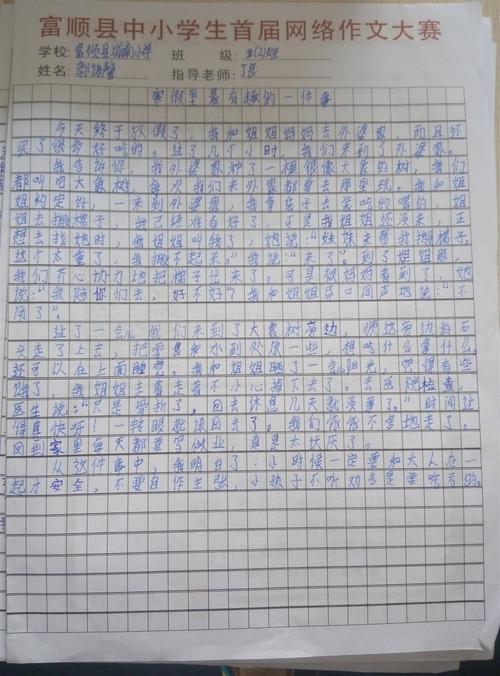 富顺县中小学生首届网络作文大赛
学校:富顺县城南小学 班 级:五(2)班
姓名: 指导老师:
寒假里最有趣的一件事
今天终于放假了,我和姐姐妈妈去外婆家,而且还
买了很多好吃的。过了几个小时,我们来到了外婆家。
我告诉你,我外婆家种了一棵很像大象的树,我们
都叫它大象树,每次我们来外婆都要去那里玩。我和姐
姐约定好,一来到外婆家,我拿袋子去装吃的喝的,姐
姐去搬梯子,我已经准备好了,可是我姐姐还没来,正
想去找她时,我姐姐叫我了,她说:“妹妹来帮我搬梯子,
这个太重了,我搬不起来。”我说:“来了。”到了姐姐那,
我们齐心协力地把梯子出来了。可是被妈妈看到了,她
说:“我陪你们去,好不好”?我和姐姐异口同声地说:“不
用了”。
过了一会儿,我们来到了大象树旁边,顺这旁边的石
头走了上去,把零食和水到处放一些,相吃什么拿什么,
还可以在上面睡觉。我和姐姐晒了一会儿阳光,觉得有些
饿了,我姐姐走着走着不小心掉下去了。去医院检查,
医生说:“只是骨折了。回去休息几天就没事了。”时间过
得真快呀!一转眼就该回去了。我们依依不舍地走了。
回到家里每天都要写做业,真是太伏厌了。
从这件事中,我明白了:小时候一定要和大人在一
起才安全,不要自作主张,小孩子不听劝告是要吃亏的。